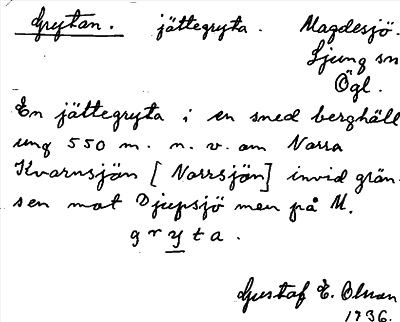 Grytan. jättegryta. Magdesjö.
Ljung sn
Ögl.
En jättegryta i en sned berghäll
ung 550 m. n. v. om Norra
Kvarnsjön [Norrsjön] invid grän-
sen mot Djupsjö men på M.
gryta.
Gustaf E. Olsson
1936.